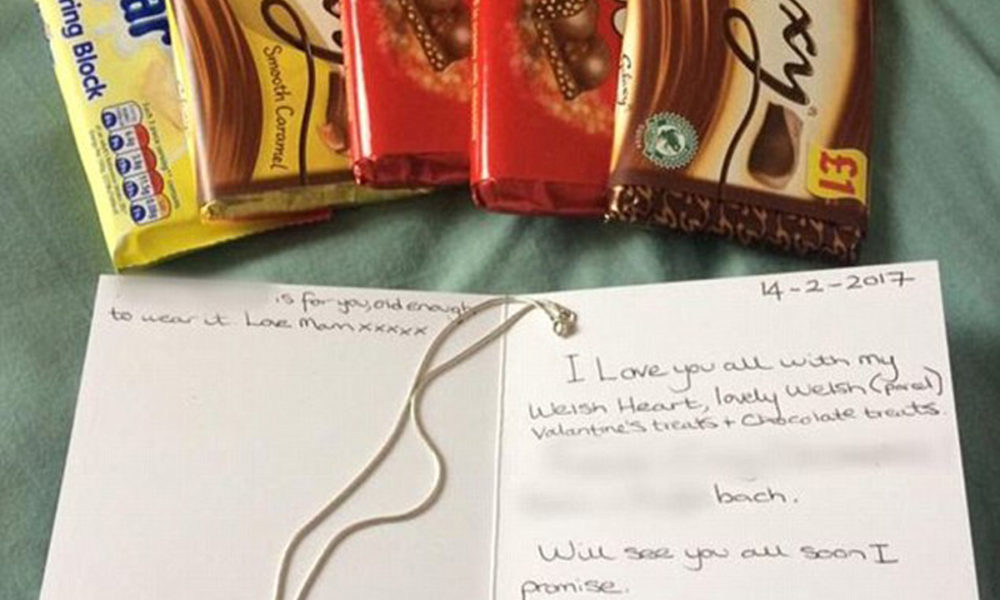 ring Block
ar
Smooth Caramel
xy
£1
is for you, old enough
to wear it. Love Mam xxxxx
14-2-2017
I Love you all with my
Welsh Heart, lovely Welsh (parcel)
Valantine's treats + Chocolate treats
bach.
Will see you all soon I
promise.